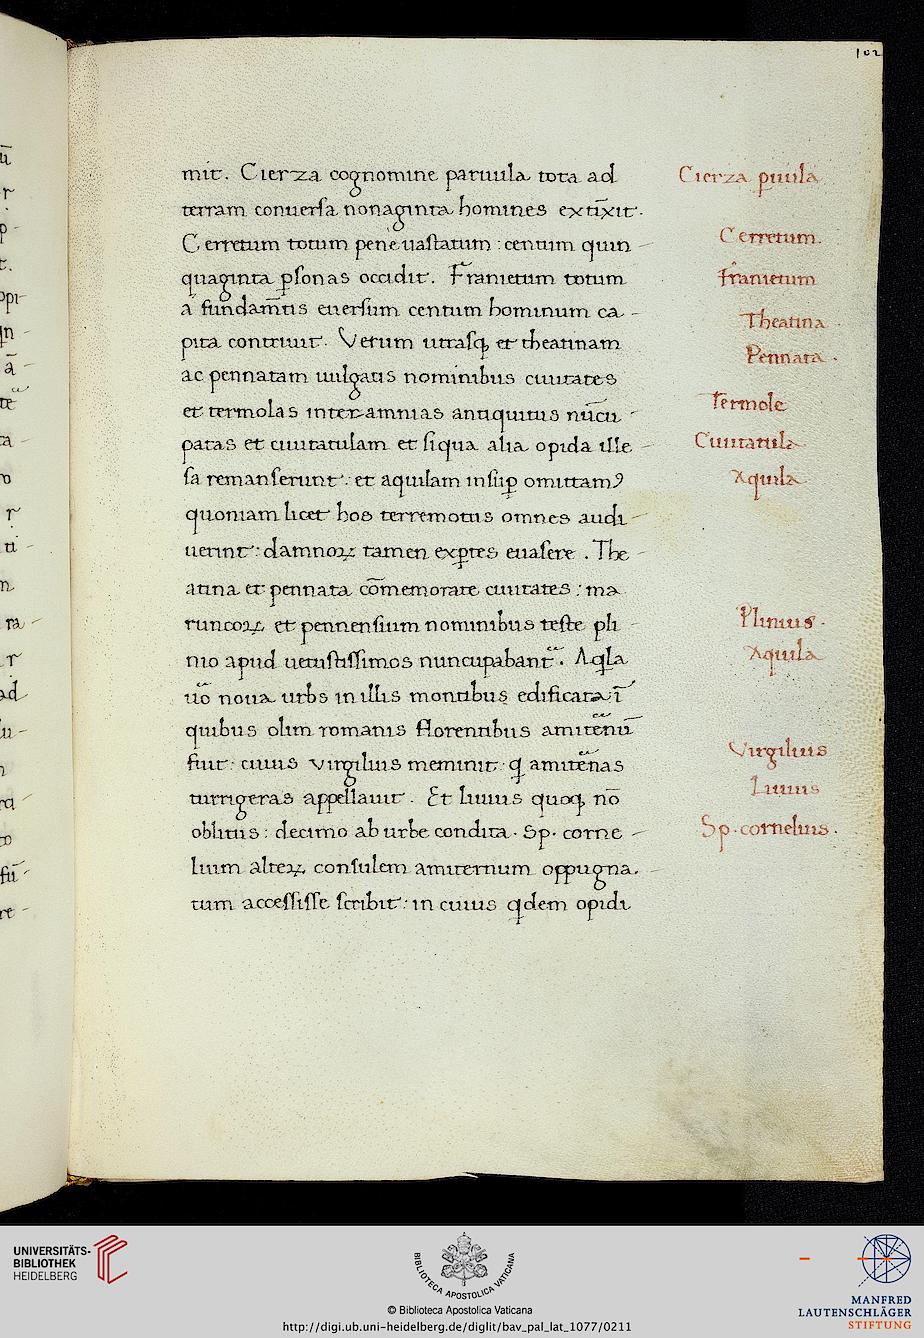 102
mit. Cierza cognomine paruula tota ad
terram conuersa nonaginta homines extīxit.
Cerretum totum pene uastatum: centum quin-
quaginta ꝑsonas occidit. Franietum totum
a fundam̄tis euersum centum hominum ca-
pita contriuit. Verum utrasqꝫ et theatinam
ac pennatam uulgatis nominibus ciuitates
et termolas inter amnias antiquitus nūcu-
patas et ciuitatulam et siqua alia opida ille-
sa remanserunt: et aquilam insuꝑ omittamꝰ
quoniam licet hos terremotus omnes audi-
uerint: damnoꝝ tamen exꝑtes euasere. The-
atina et pennata cōmemorate ciuitates: ma
runcoꝝ et pennensium nominibus teste pli-
nio apud uetustissimos nuncupabant᷑. Aqͥla
uͦo noua urbs in illis montibus edificata ī
quibus olim romanis florentibus amiteͬnū
fuit: cuius virgilius meminit: qͥ amiteͬnas
turrigeras appellauit. Et liuius quoqꝫ nō
oblitus: decimo ab urbe condita. Sp. corne-
lium alteꝝ consulem amiternum oppugna-
tum accessisse scribit: in cuius qͥdem opidi
Cierza puula
Cerretum.
franietum
Theatina.
Pennata.
Termole
Ciuitatula
Aquila
Plinius.
Aquila
Virgilius
Liuius
Sp. cornelius.
UNIVERSITÄTS-
BIBLIOTHEK
HEIDELBERG
BIBLIOTECA APOSTOLICA VATICANA
© Biblioteca Apostolica Vaticana
http://digi.ub.uni-heidelberg.de/diglit/bav_pal_lat_1077/0211
MANFRED
LAUTENSCHLÄGER
STIFTUNG